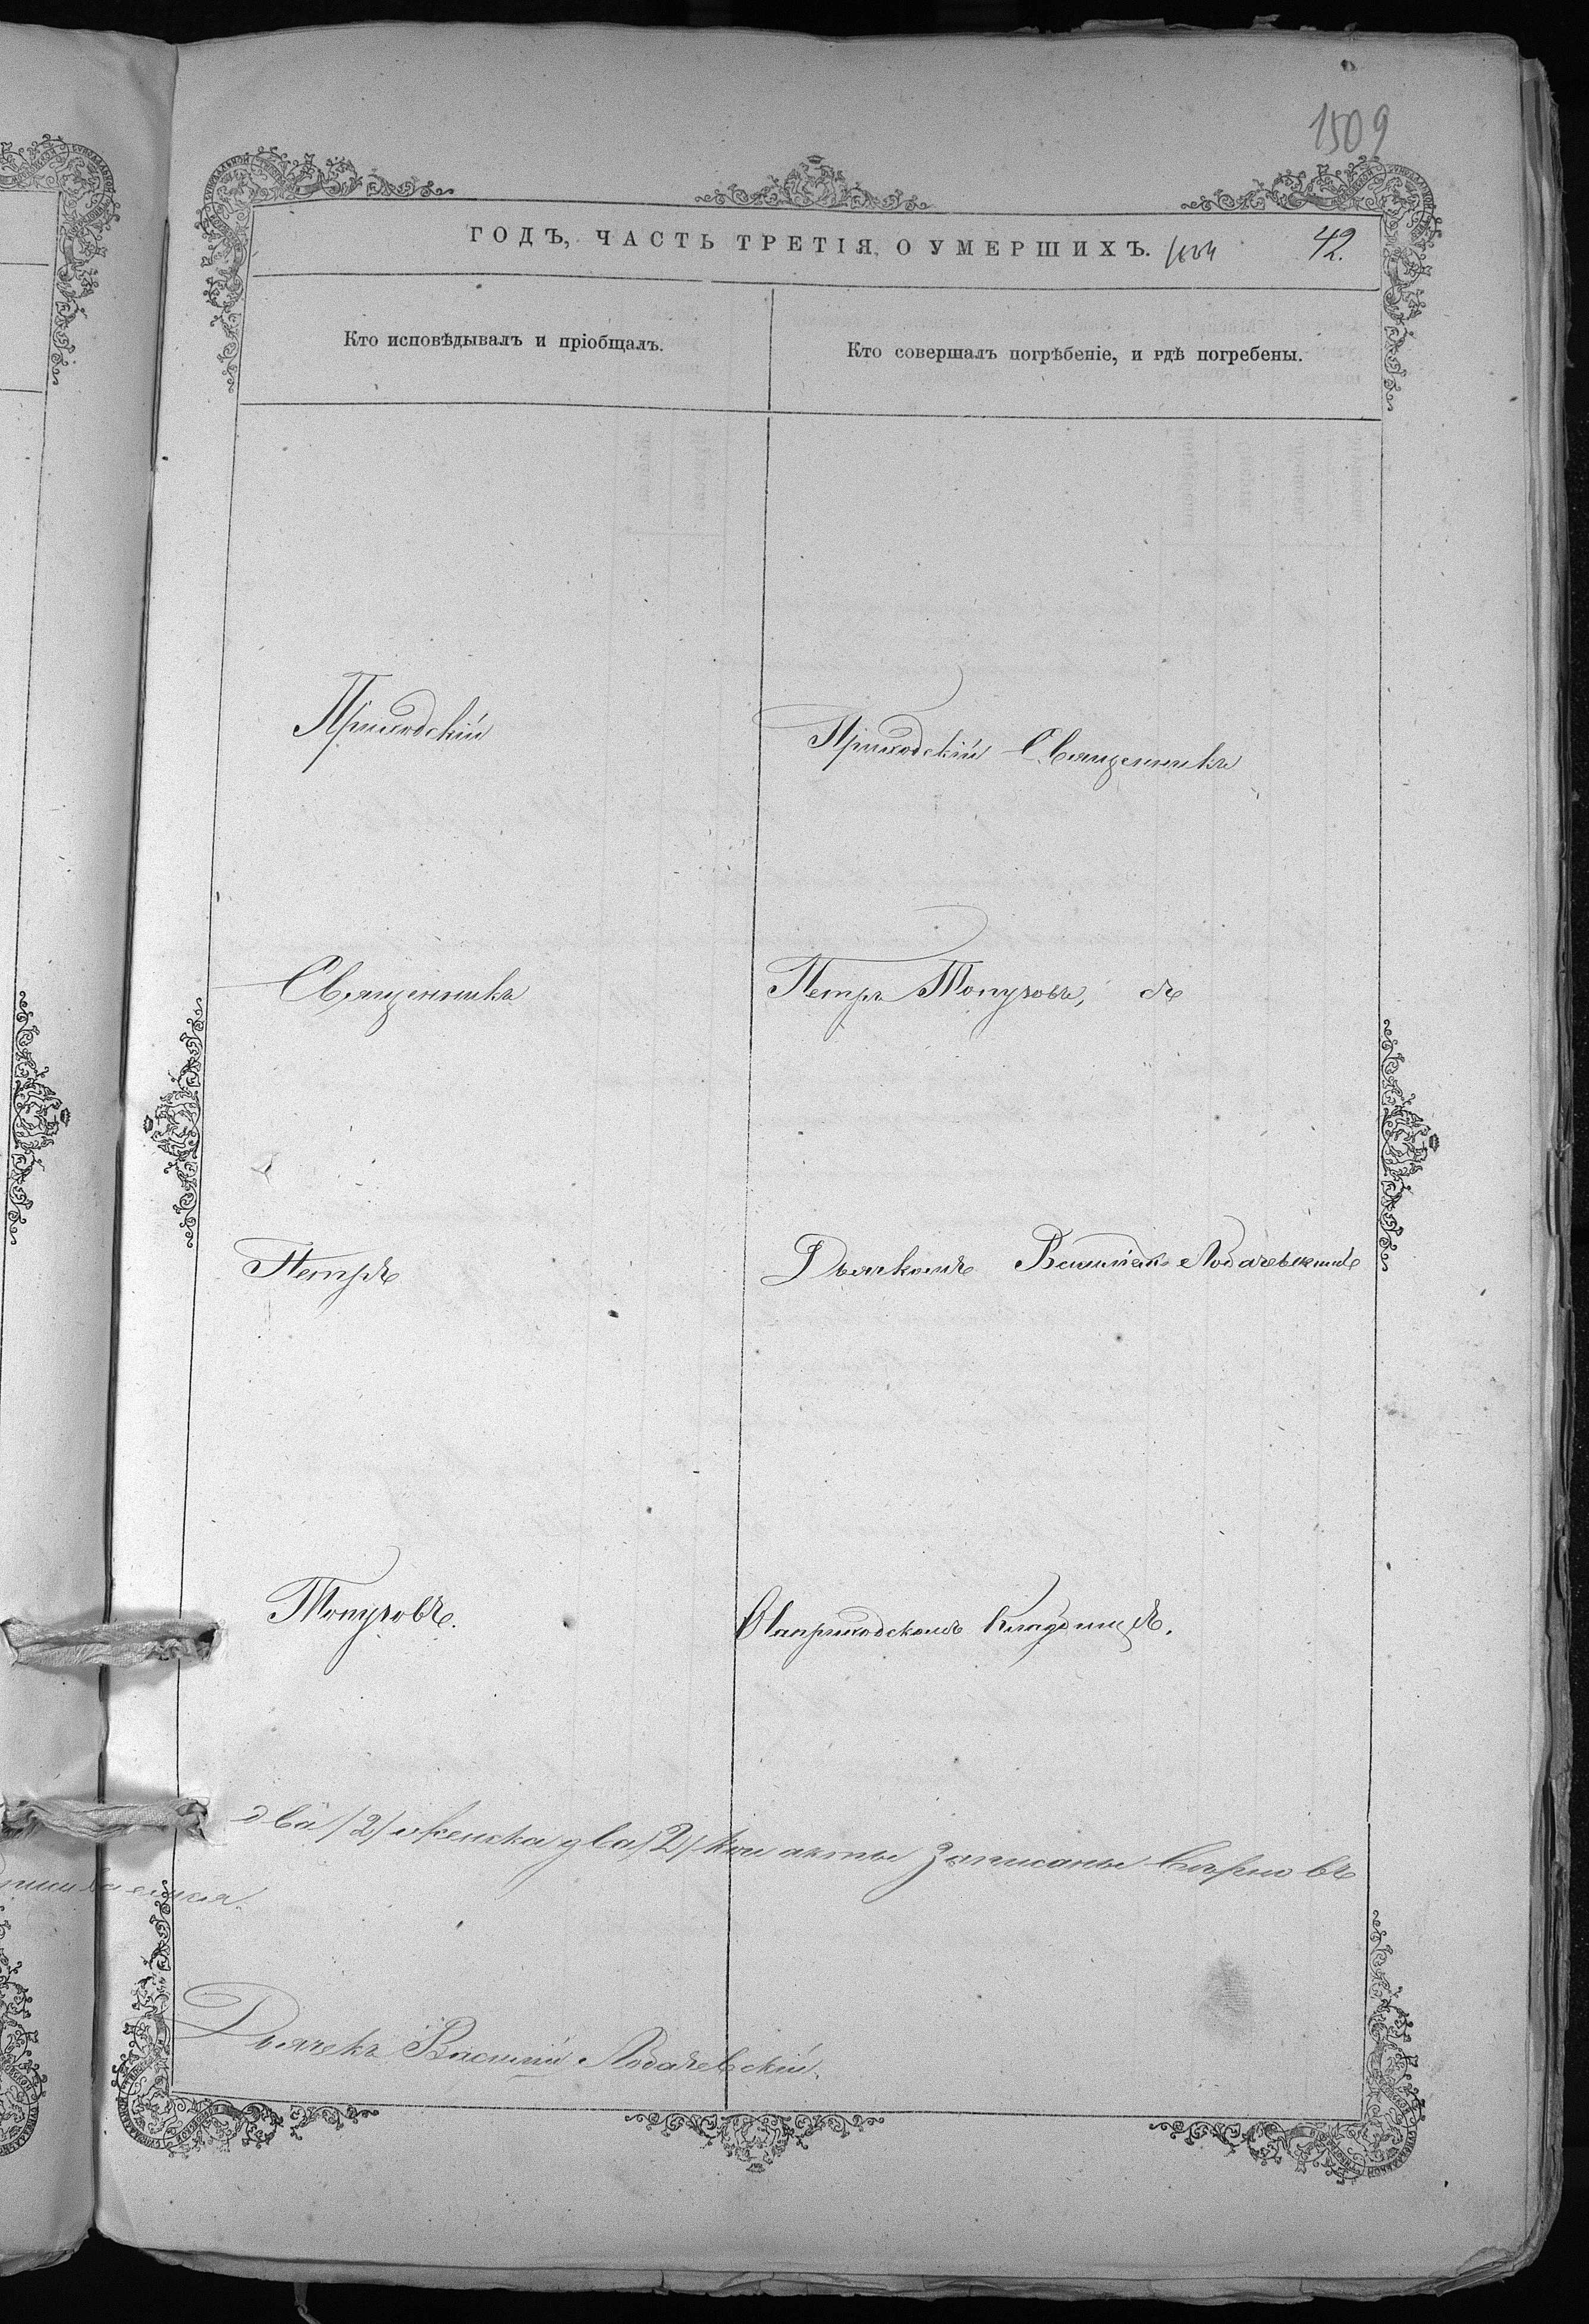 1509
ГОДЪ, ЧАСТЬ ТРЕТІЯ, О УМЕРШИХЪ.
42.
Кто исповѣдывалъ и пріобщалъ.
Кто совершалъ погрѣбеніе, и гдѣ погребены.
Приходскій
Священникъ
Петръ
Топузовъ.
Приходскій Священникъ
Петръ Топузовъ, съ
Дьячкомъ Василіемъ Лобачевскимъ
На приходскомъ кладбищѣ.
два /2/ и женска два /2/ кои акты записаны вѣрно въ
Дьячекъ Василій Лобачевскій.